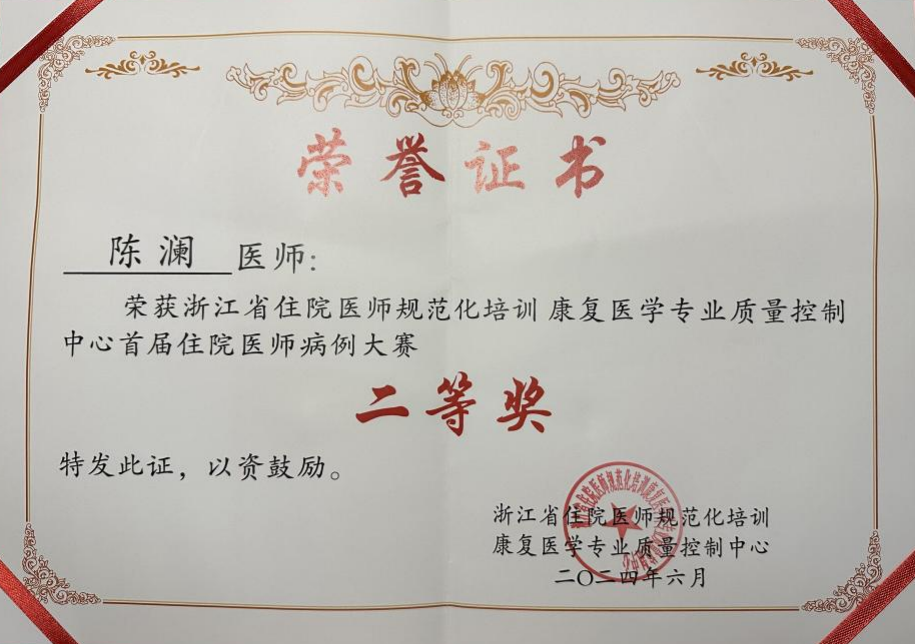 荣誉证书
陈澜 医师:
荣获浙江省住院医师规范化培训 康复医学专业质量控制
中心首届住院医师病例大赛
二等奖
特发此证，以资鼓励。
浙江省住院医师规范化培训
康复医学专业质量控制中心
二〇二四年六月